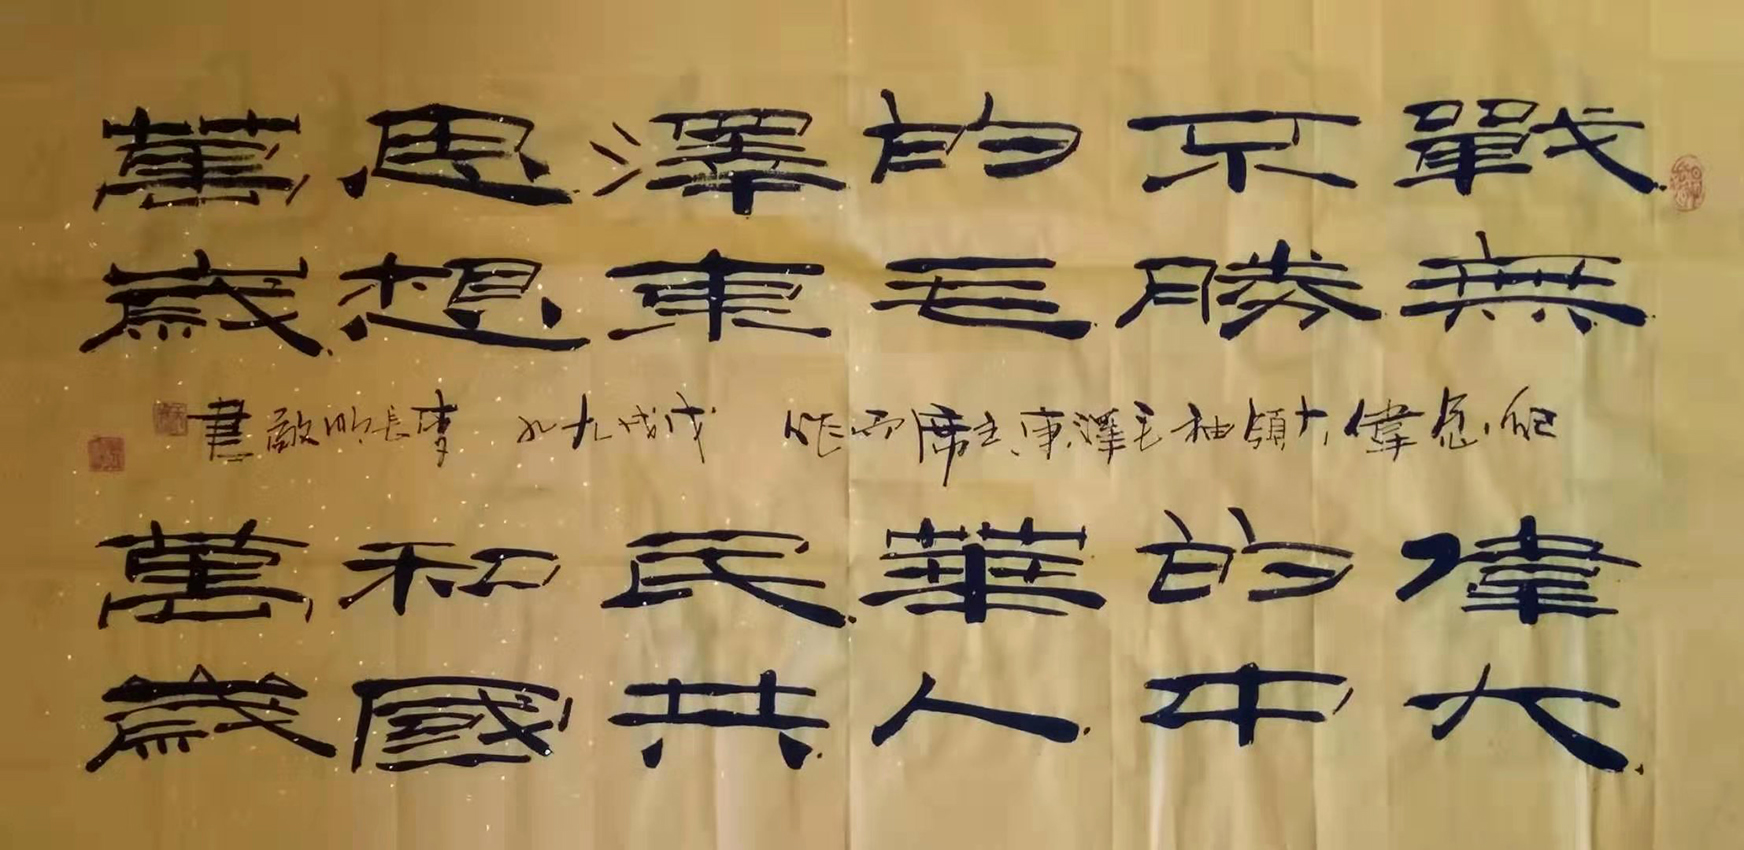 戰無
不勝
的毛
澤東
思想
萬歲
紀念偉大領袖毛澤東主席而作 戊戌九九 李長明敬書
偉大
的中
華人
民共
和國
萬歲